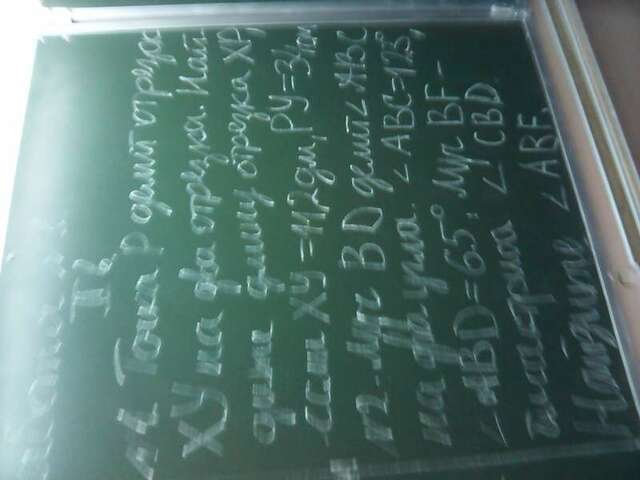 II в
№1 Точка P делит отрезок
XY на два отрезка. Най-
дите длину отрезка XP,
если XY = 11,2 дм, PY = 34 см
№2. Луч BD делит ∠ ABC
на два угла. ∠ ABC = 128°,
∠ ABD = 65°, Луч BF -
биссектриса ∠ CBD.
Найдите ∠ ABF.